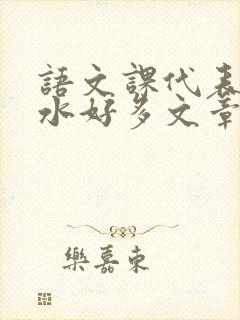 語文課代表
水好多文章
樂嘉東